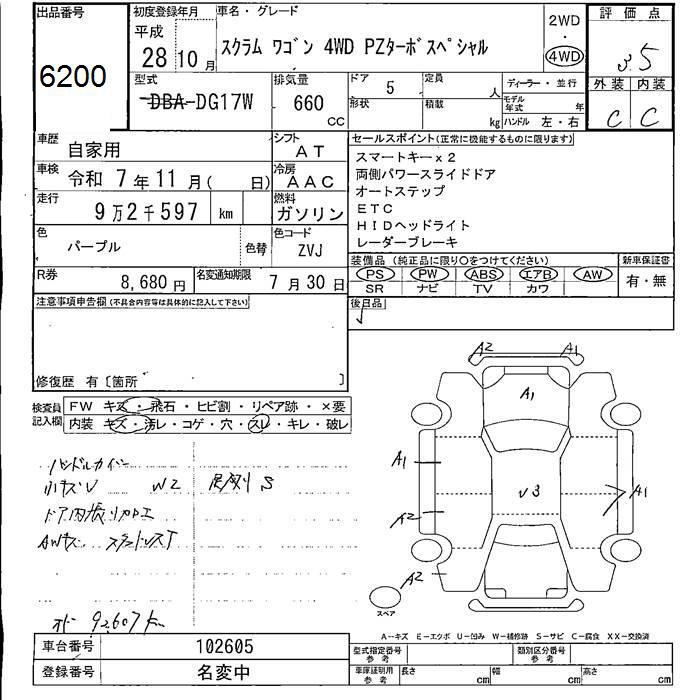 出品番号
6200
初度登録年月
平成
28 10月
車名・グレード
スクラム ワゴン 4WD PZターボスペシャル
2WD
・
4WD
評価点
3.5
外装 内装
C C
型式
DBA-DG17W
排気量
660
CC
ドア
5
定員
人
形状
積載
kg
ディーラー・並行
モデル
年式
年
ハンドル 左・右
車歴
自家用
シフト
AT
車検
令和 7年11月( 日)
冷房
AAC
走行
9万2千597 km
燃料
ガソリン
色
パープル
色替
色コード
ZVJ
R券
8,680円
名変通知期限
7月30日
セールスポイント(正常に機能するものに限ります)
スマートキーx2
両側パワースライドドア
オートステップ
ETC
HIDヘッドライト
レーダーブレーキ
装備品 (純正品に限り○をつけてください)
PS PW ABS エアB AW
SR ナビ TV カワ
新車保証書
有・無
後日品
注意事項申告欄(不具合内容等は具体的に記入して下さい)
修復歴 有〔箇所 〕
検査員
記入欄
FW キズ・飛石・ヒビ割・リペア跡・×要
内装 キズ・汚レ・コゲ・穴・スレ・キレ・破レ
小キズU W2 S
ドア内張り加工
AWキズ
オドー 92607km
A2 A1
A1
A1
A2
A2
√3
A1
スペア
A-キズ E-エクボ U-凹み W-補修跡 S-サビ C-腐食 XX-交換済
車台番号
102605
登録番号
名変中
型式指定番号
参考
類別区分番号
参考
車庫証明用
参考
長さ
cm
幅
cm
高さ
cm